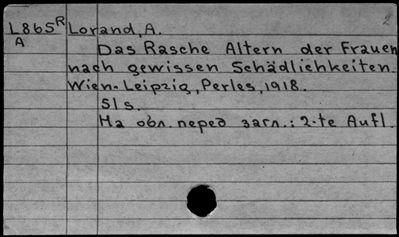 2
L865R Lorand, A.
A Das Rasche Altern der Frauen
nach gewissen Schädlichkeiten.
Wien-Leipzig, Perles, 1918.
51 s.
На обл. перед загл.: 2-te Aufl.